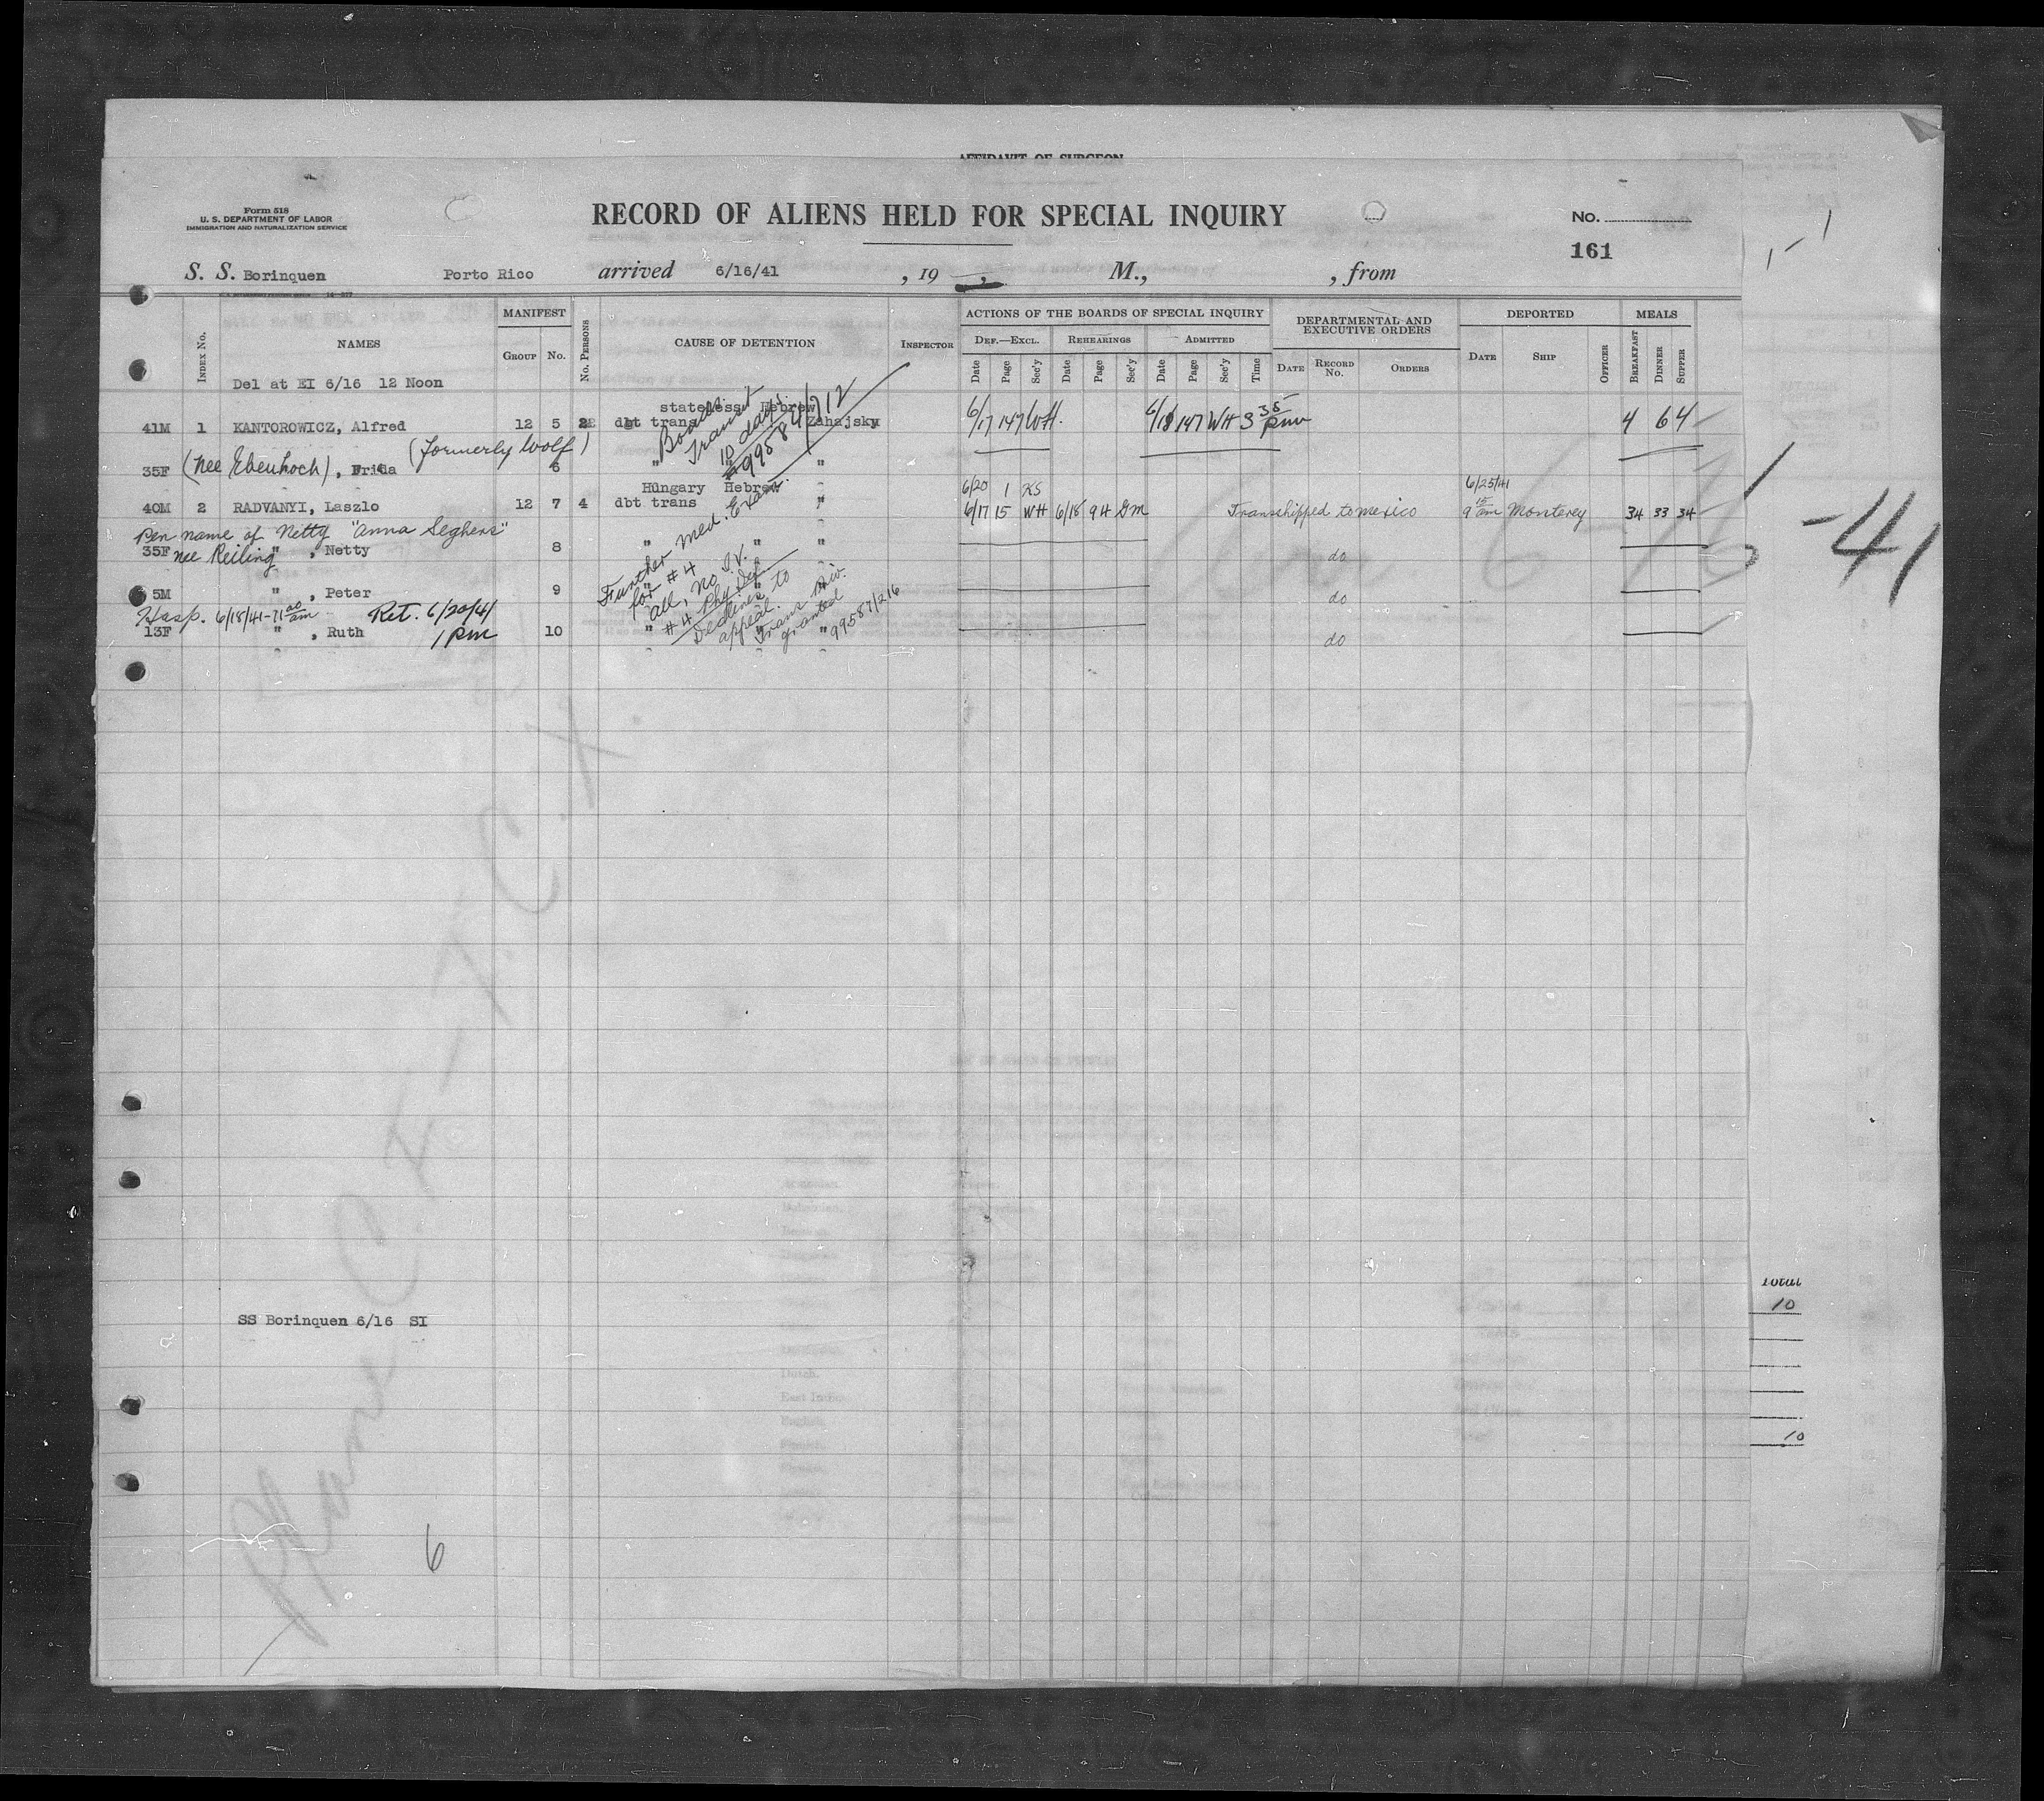 AFFIDAVIT OF SURGEON
Form 518
U. S. DEPARTMENT OF LABOR
IMMIGRATION AND NATURALIZATION SERVICE
RECORD OF ALIENS HELD FOR SPECIAL INQUIRY
No.
161
S. S. Borinquen Porto Rico arrived 6/16/41, 19 , M., , from
INDEX No. NAMES MANIFEST GROUP No. No. PERSONS CAUSE OF DETENTION INSPECTOR
ACTIONS OF THE BOARDS OF SPECIAL INQUIRY
DEF.—EXCL. REHEARINGS ADMITTED
Date Page Sec'y Date Page Sec'y Date Page Sec'y Time
DEPARTMENTAL AND EXECUTIVE ORDERS
DATE RECORD No. ORDERS
DEPORTED
DATE SHIP OFFICER
MEALS
BREAKFAST DINNER SUPPER
Del at EI 6/16 12 Noon
stateless Hebrew
41M 1 KANTOROWICZ, Alfred 12 5 2 dbt trans Zahajsky 6/17 147 WH. 6/18 147 WH 3 35 pm 4 6 4
Boads Transit
10 days
#99584/712
(formerly Woolf)
35F (nee Ebenhoch), Frida 6 " " "
Hungary Hebrew 6/20 1 KS 6/25/41
40M 2 RADVANYI, Laszlo 12 7 4 dbt trans " 6/17 15 WH 6/18 9H GM Transhipped to mexico 9 15 am Monterey 34 33 34
Pen name of Netty "Anna Seghers"
35F nee Reiling " , Netty 8 " " " do
5M " , Peter 9 " " " do
Hosp. 6/18/41-11 00 am Ret. 6/20/41
13F " , Ruth 1 pm 10 " " " do
Further med. Exam.
for #4
all, No I.V.
#4 Phy Def
Declines to
appeal.
Trans Priv.
granted
99587/216
-41
Total
10
10
SS Borinquen 6/16 SI
6